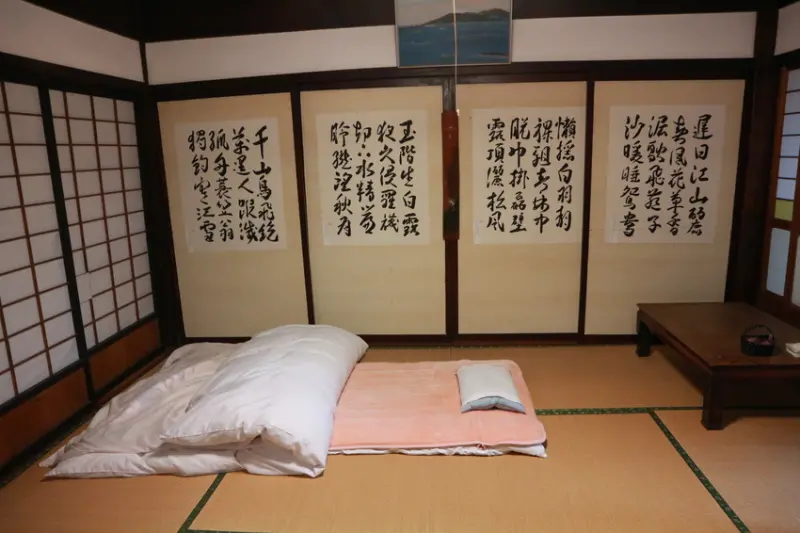 遲日江山麗
春風花草香
泥融飛燕子
沙暖睡鴛鴦
懶搖白羽扇
裸袒青林中
脫巾掛石壁
露頂灑松風
玉階生白露
夜久侵羅襪
却下水精簾
玲瓏望秋月
千山鳥飛絕
萬逕人蹤滅
孤舟蓑笠翁
獨釣寒江雪